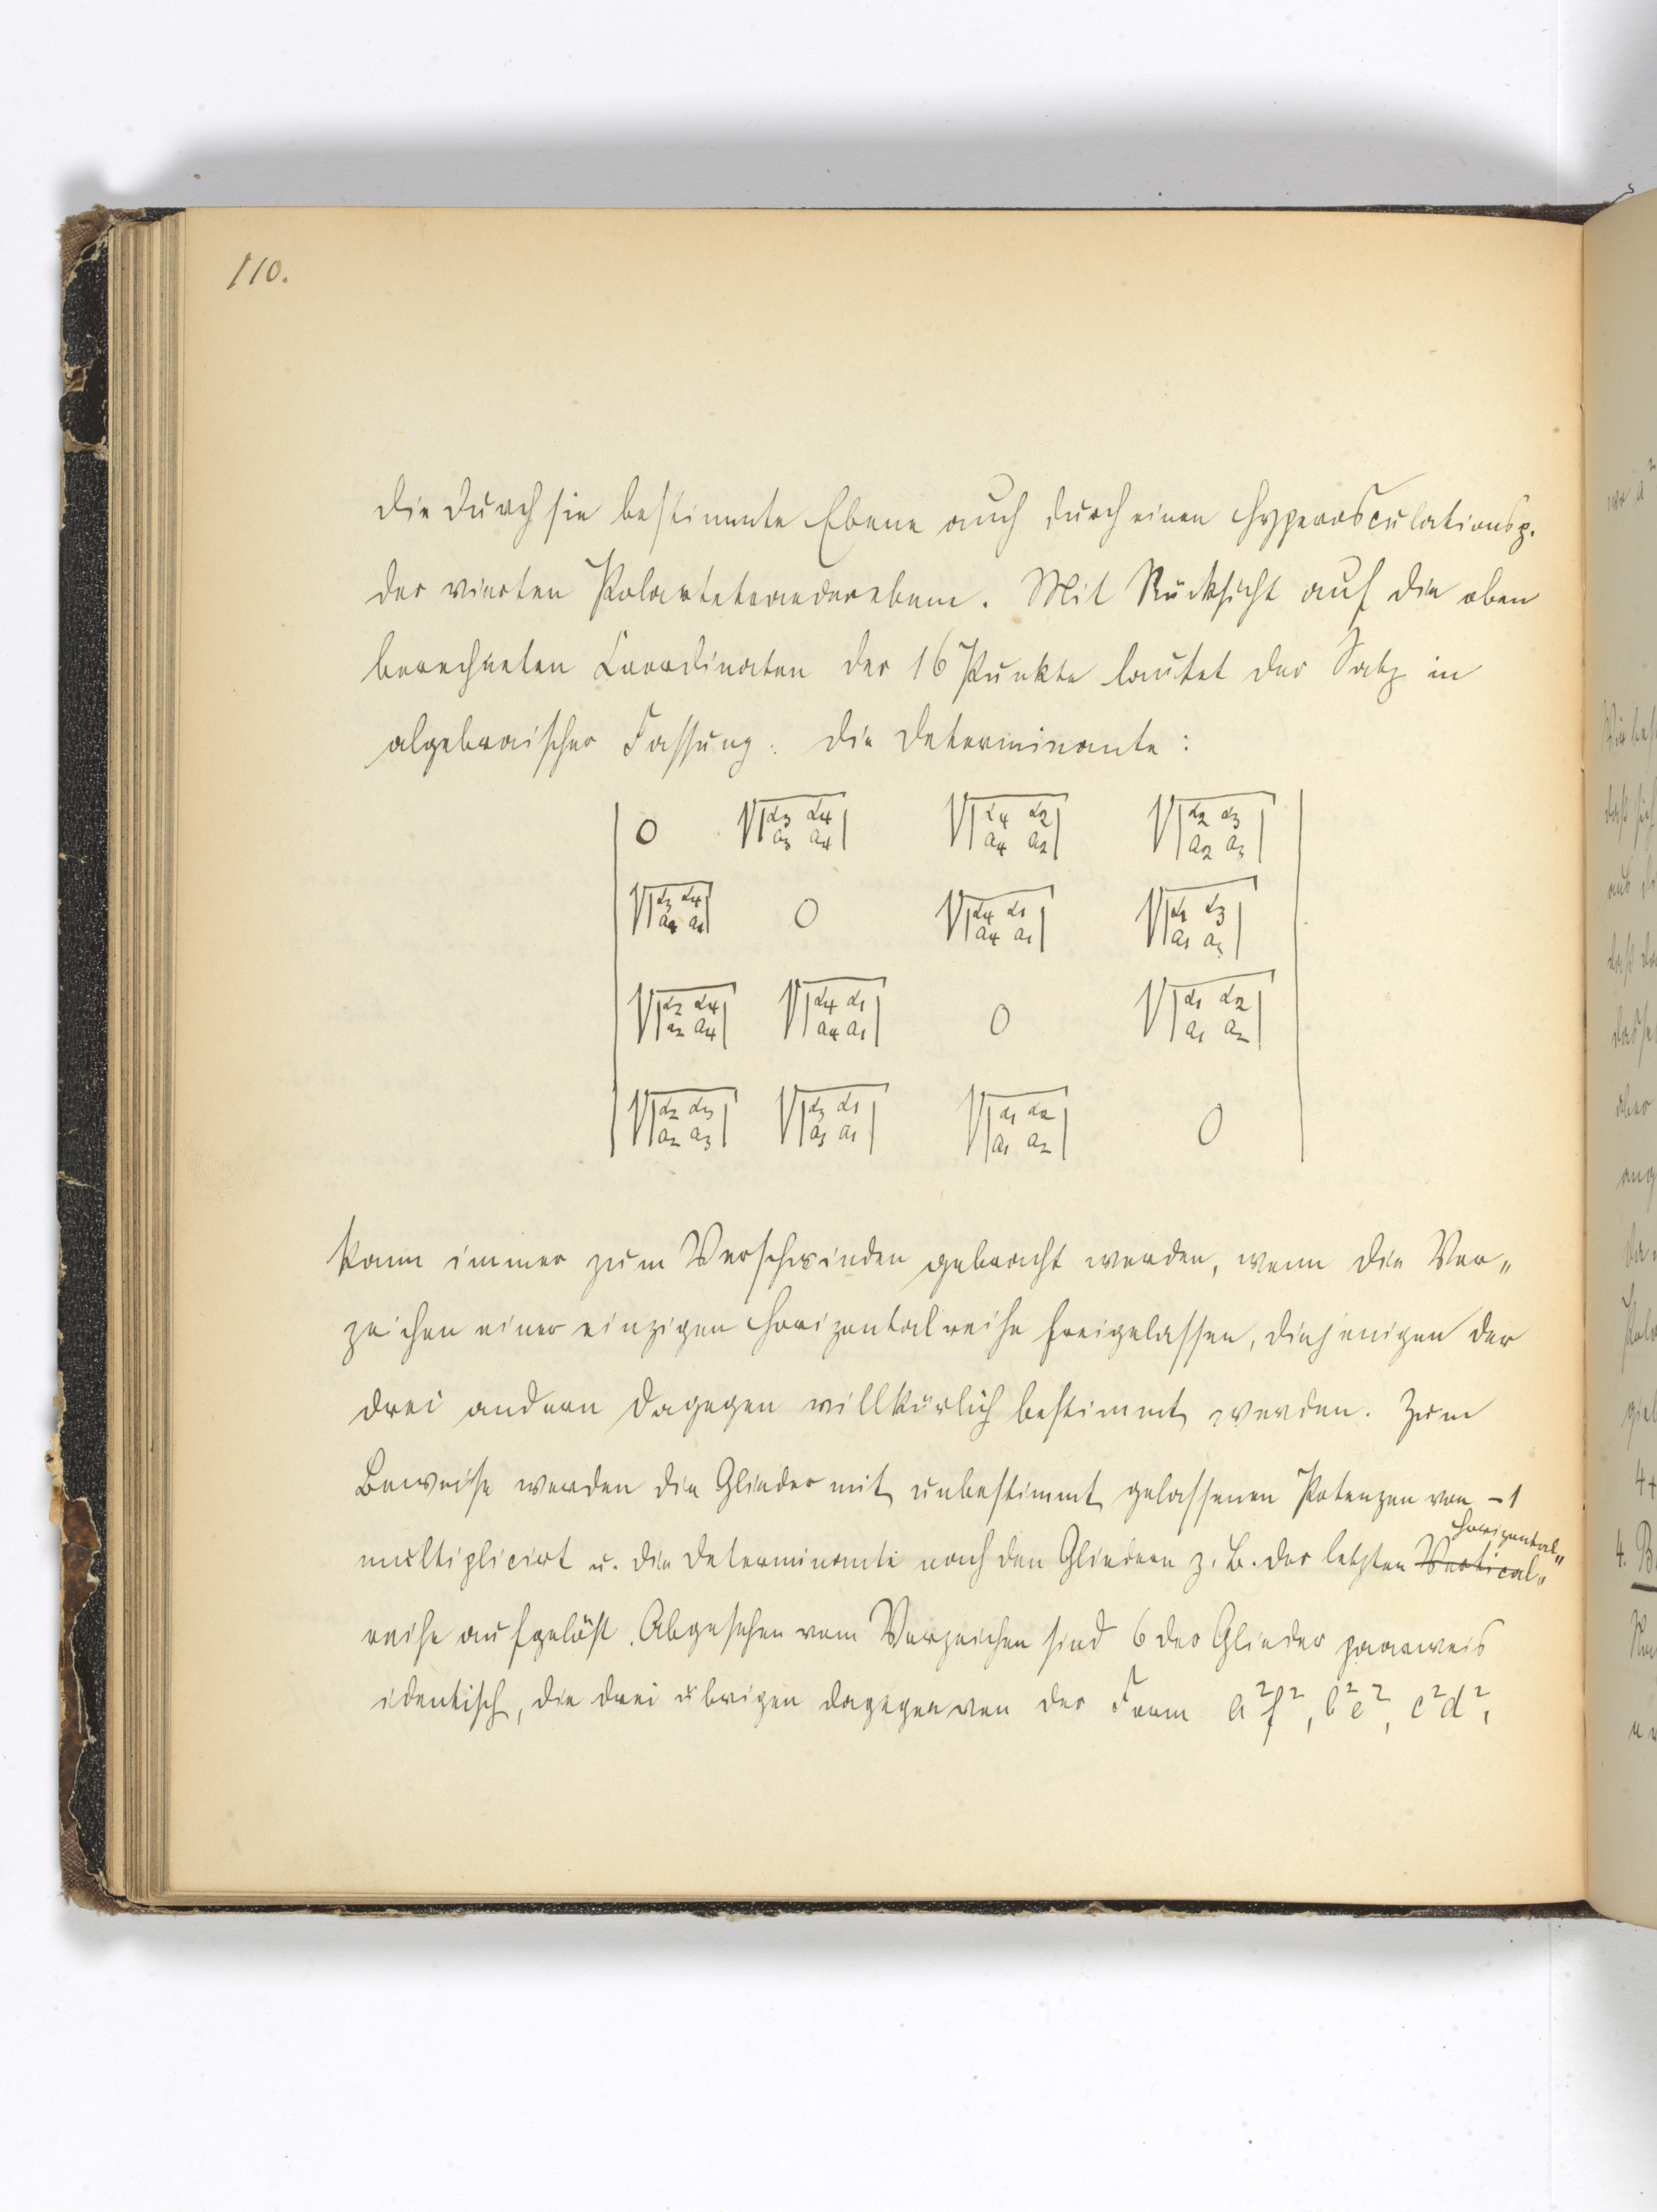 110.
die durch sie bestimmte Ebene auch durch einen Hyperosculationsp.
der vierten Polartetraederebene. Mit Rücksicht auf die oben
berechneten Coordinaten der 16 Punkte lautet der Satz in
algebraischer Fassung: die Determinante:
| 0 √|α₃ α₄ a₃ a₄| √|α₄ α₂ a₄ a₂| √|α₂ α₃ a₂ a₃| |
| √|α₃ α₄ a₃ a₄| 0 √|α₄ α₁ a₄ a₁| √|α₁ α₃ a₁ a₃| |
| √|α₂ α₄ a₂ a₄| √|α₄ α₁ a₄ a₁| 0 √|α₁ α₂ a₁ a₂| |
| √|α₂ α₃ a₂ a₃| √|α₃ α₁ a₃ a₁| √|α₁ α₂ a₁ a₂| 0 |
kann immer zum Verschwinden gebracht werden, wenn die Vor„
zeichen einer einzigen Horizontalreihe freigelassen, diejenigen der
drei andern dagegen willkürlich bestimmt werden. Zum
Beweise werden die Glieder mit unbestimmt gelassenen Potenzen von -1
Horizontal„
multiplicirt u. die Determinante nach den Gliedern z. B. der letzten Vertical„
reihe aufgelöst. Abgesehen vom Vorzeichen sind 6 der Glieder paarweis
identisch, die drei übrigen dagegen von der Form a²f², b²e², c²d²,